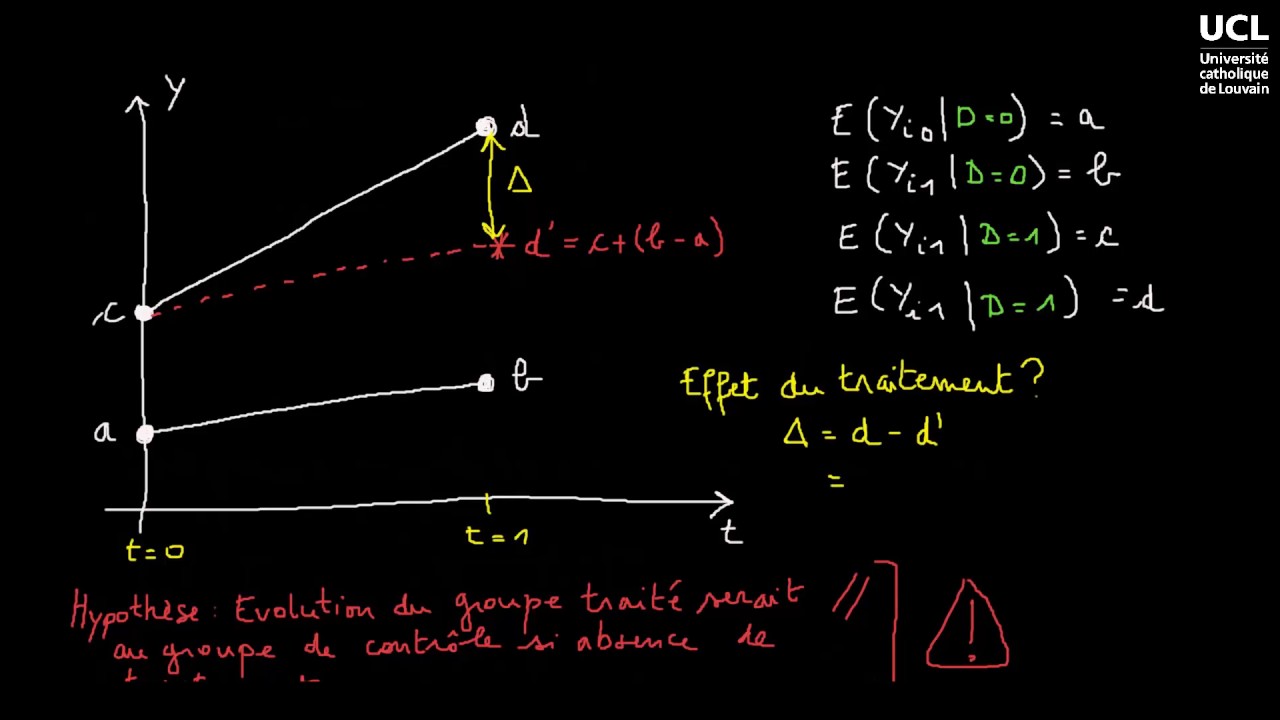 UCL
Université
catholique
de Louvain
y
d
Δ
d' = c+(b-a)
c
b
a
t=0
t=1
t
E(Yi0|D=0) = a
E(Yi1|D=0) = b
E(Yi1|D=1) = c
E(Yi1|D=1) = d
Effet du traitement?
Δ = d - d'
=
Hypothèse: Evolution du groupe traité serait //
au groupe de contrôle si absence de
!